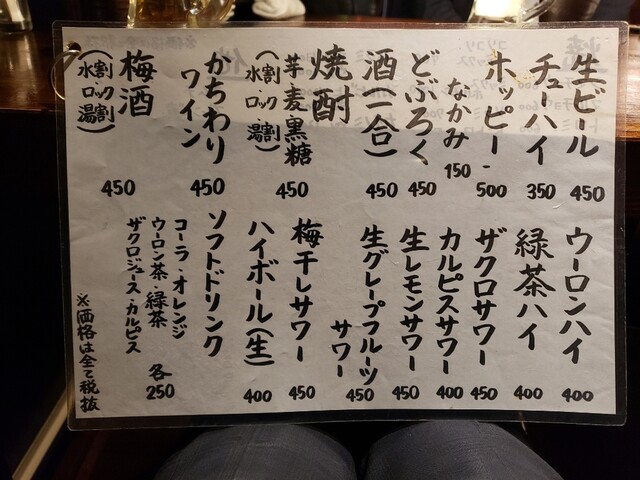 生ビール 450
チューハイ 350
ホッピー 500
なかみ 150
どぶろく 450
酒(一合) 450
焼酎
芋・麦・黒糖
(水割・ロック・湯割) 450
かちわり
ワイン 450
梅酒
(水割・ロック・湯割) 450
ウーロンハイ 400
緑茶ハイ 400
ザクロサワー 450
カルピスサワー 400
生レモンサワー 450
生グレープフルーツ
サワー 450
梅干しサワー 450
ハイボール(生) 400
ソフトドリンク
コーラ・オレンジ
ウーロン茶・緑茶
ザクロジュース・カルピス
各250
※価格は全て税抜